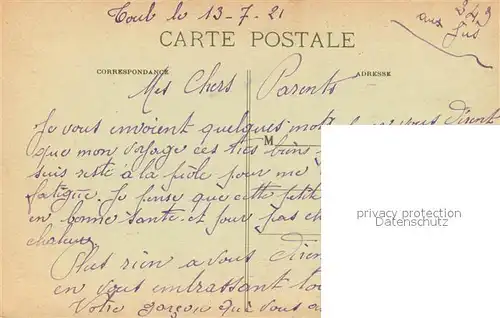 Toul le 13-7-21
343
aux jus
CARTE POSTALE
CORRESPONDANCE
ADRESSE
Mes Chers Parents
Je vous envoient quelques mots vous disent
M
que mon voyage ces très bien
suis resté a la piole pour me
fatigue. Je pense que cette petite
en bonne sante. et pour pas
chaleur
Plus rien a vous
en vous embrassant
Votre garçon que vous
privacy protection
www.delcampe.net